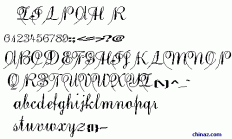 0123456789:;<=>?@
ABCDEFGHIJKLMNOP
QRSTUVWXYZ[\]^_
abcdefghijklmnopqr
stuvwxyz{|}~
chinaz.com